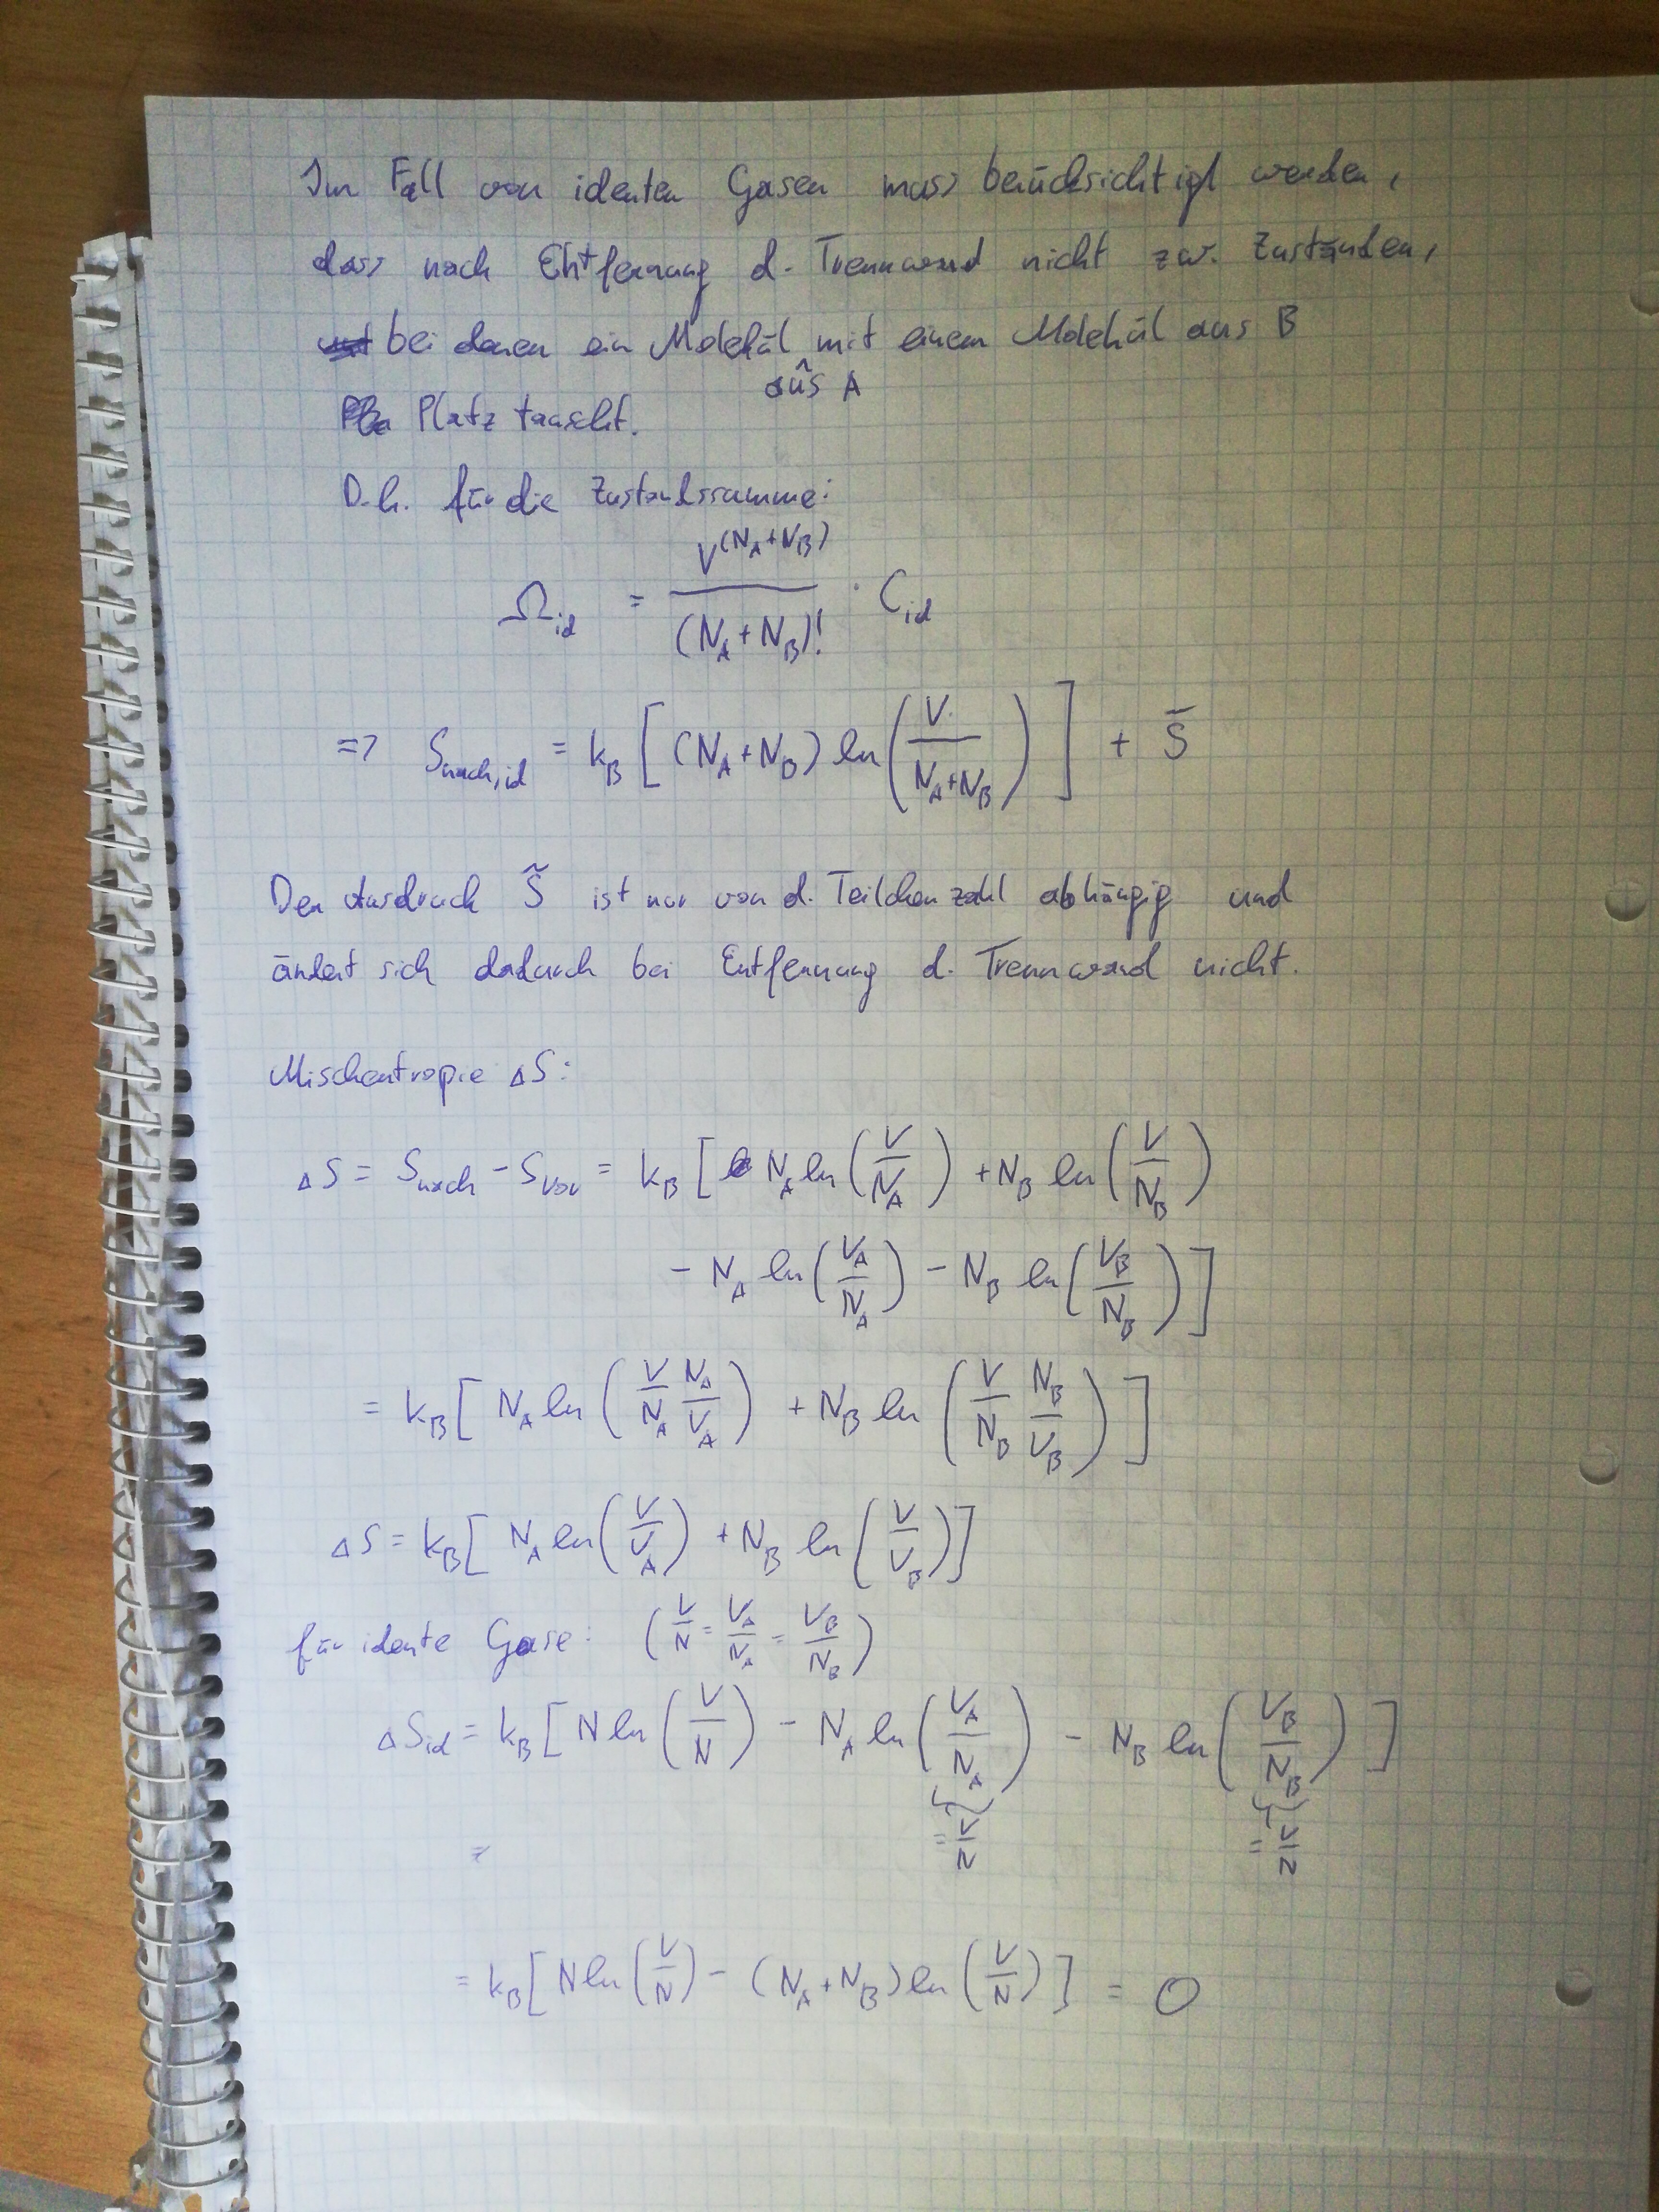 Im Fall von identen Gasen muss berücksichtigt werden,
dass nach Entfernung d. Trennwand nicht zw. Zuständen,
bei denen ein Molekül mit einem Molekül aus B
aus A
Platz tauscht.
D.h. für die Zustandssumme:
Ω_id = V^(N_A+N_B) / (N_A+N_B)! · C_id
=> S_nach,id = k_B [ (N_A+N_B) ln( V / (N_A+N_B) ) ] + S̃
Der Ausdruck S̃ ist nur von d. Teilchenzahl abhängig und
ändert sich dadurch bei Entfernung d. Trennwand nicht.
Mischentropie ΔS:
ΔS = S_nach - S_vor = k_B [ N_A ln( V/N_A ) + N_B ln( V/N_B )
- N_A ln( V_A/N_A ) - N_B ln( V_B/N_B ) ]
= k_B [ N_A ln( V/N_A N_A/V_A ) + N_B ln( V/N_B N_B/V_B ) ]
ΔS = k_B [ N_A ln( V/V_A ) + N_B ln( V/V_B ) ]
für idente Gase: ( V/N = V_A/N_A = V_B/N_B )
ΔS_id = k_B [ N ln( V/N ) - N_A ln( V_A/N_A ) - N_B ln( V_B/N_B ) ]
= V/N = V/N
=
= k_B [ N ln( V/N ) - (N_A+N_B) ln( V/N ) ] = 0